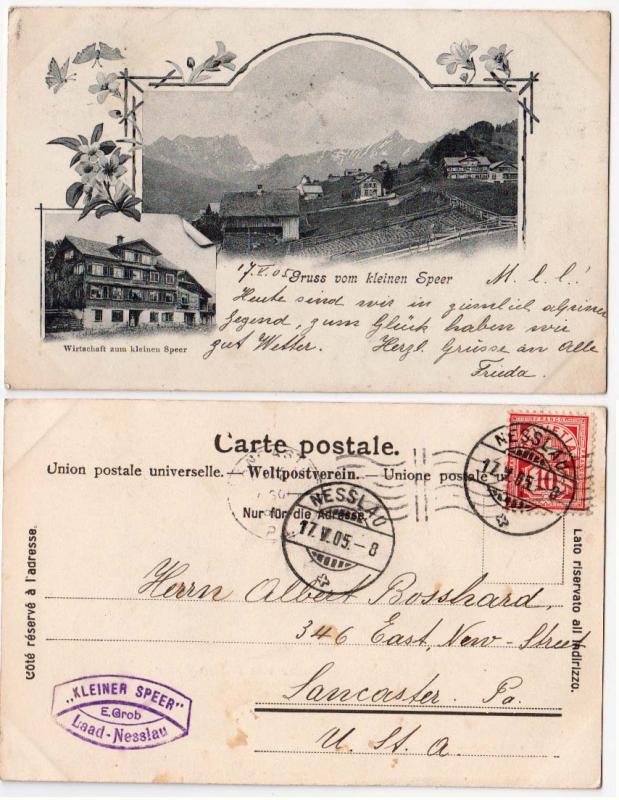 17.V.05
Gruss vom kleinen Speer
M. l. l.!
Heute sind wir in ziemlich alpiner
Gegend, zum Glück haben wir
gut Wetter. Herzl. Grüsse an Alle
Frieda.
Wirtschaft zum kleinen Speer
Carte postale.
Union postale universelle. — Weltpostverein. — Unione postale
Nur für die Adresse.
NESSLAU
17.V.05.-8
FRANCO
10
NESSLAU
17.V.05.-8
Côté réservé à l'adresse.
Lato riservato all indirizzo.
Herrn Albert Bosshard
346 East, New-Street
Lancaster. Pa.
U. S. A.
"KLEINER SPEER"
E. Grob
Laad-Nesslau